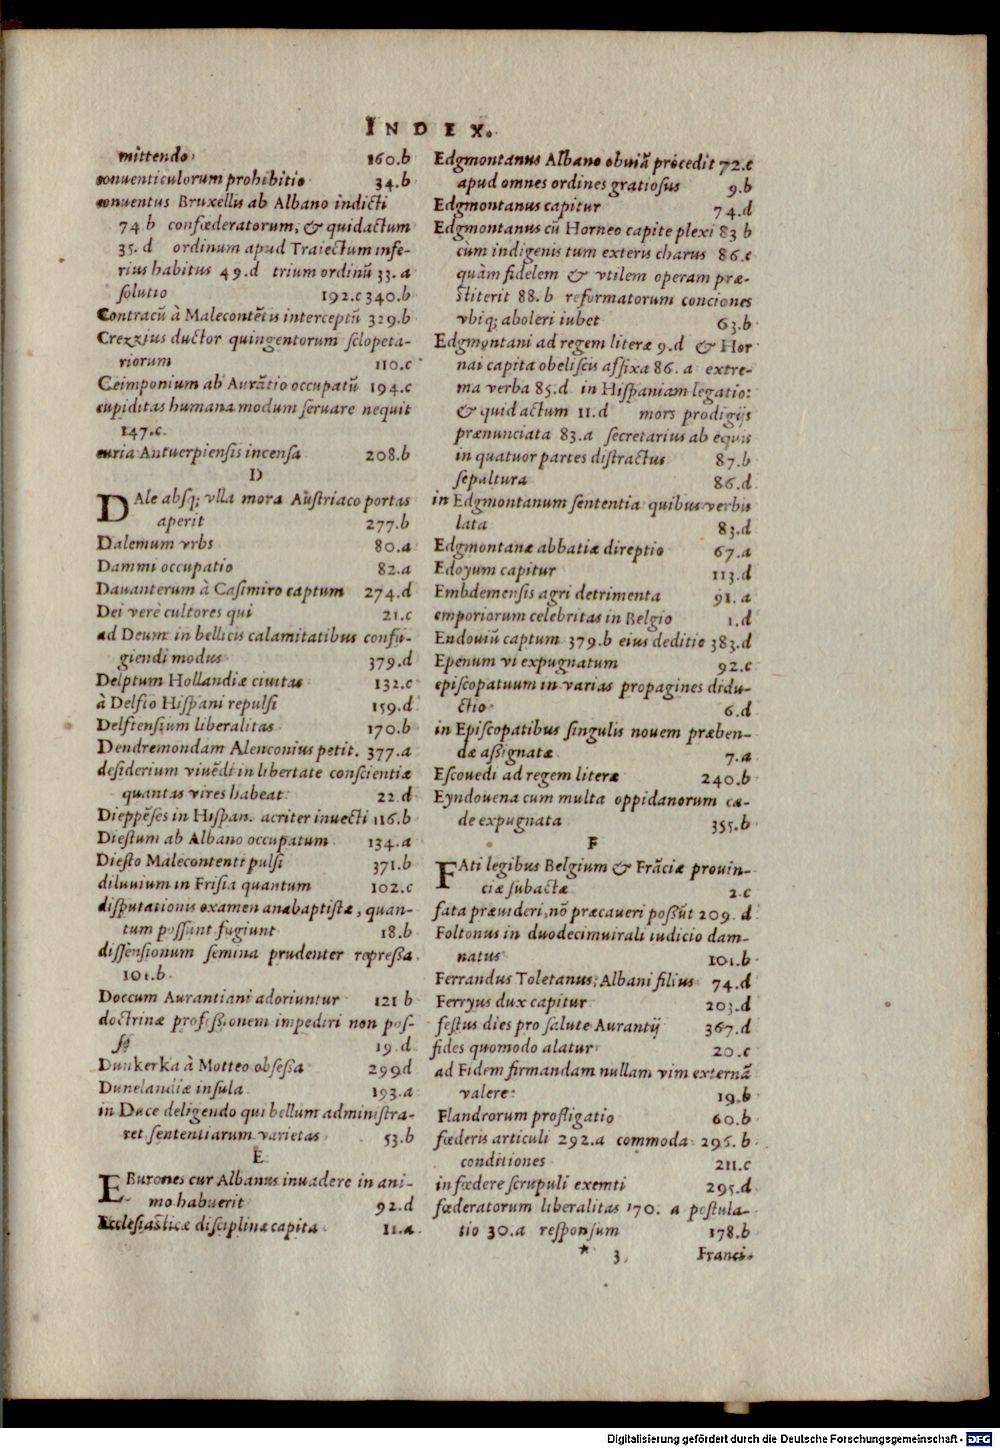 INDEX.
mittendo 160.b
conuenticulorum prohibitio 34.b
conuentus Bruxellis ab Albano indicti
74 b confœderatorum, & quid actum
35. d ordinum apud Traiectum infe-
rius habitus 49.d trium ordinũ 33. a
solutio 192.c 340.b
Contracũ à Malecontẽtis interceptũ 329.b
Crezzius ductor quingentorum sclopeta-
riorum 110.c
Ceimponium ab Aurãtio occupatũ 194.c
cupiditas humana modum seruare nequit
147.c.
curia Antuerpiensis incensa 208.b
D
DAle absq; vlla mora Austriaco portas
aperit 277.b
Dalemum vrbs 80.a
Dammi occupatio 82.a
Dauanterum à Casimiro captum 274.d
Dei verè cultores qui 21.c
ad Deum in bellicis calamitatibus confu-
giendi modus 379.d
Delptum Hollandiæ ciuitas 132.c
à Delfio Hispani repulsi 159.d
Delftensium liberalitas 170.b
Dendremondam Alenconius petit. 377.a
desiderium viuẽdi in libertate conscientiæ
quantas vires habeat 22.d
Dieppẽses in Hispan. acriter inuecti 116.b
Diestum ab Albano occupatum 134.a
Diesto Malecontenti pulsi 371.b
diluuium in Frisia quantum 102.c
disputationis examen anabaptistæ, quan-
tum possunt fugiunt 18.b
dissensionum semina prudenter repressa.
101.b
Doccum Aurantiani adoriuntur 121 b
doctrinæ professionem impediri non pos-
se 19.d
Dunkerka à Motteo obsessa 299d
Dunelandiæ insula 193.a
in Duce deligendo qui bellum administra-
ret sententiarum varietas 53.b
E
EBurones cur Albanus inuadere in ani-
mo habuerit 92.d
Ecclesiasticæ disciplinæ capita 11.a
Edgmontanus Albano obuiã procedit 72.c
apud omnes ordines gratiosus 9.b
Edgmontanus capitur 74.d
Edgmontanus cũ Horneo capite plexi 83 b
cum indigenis tum exteris charus 86.c
quàm fidelem & vtilem operam præ-
stiterit 88.b reformatorum conciones
vbiq; aboleri iubet 63.b
Edgmontani ad regem literæ 9.d & Hor
nai capita obeliscis affixa 86. a extre-
ma verba 85.d in Hispaniam legatio:
& quid actum 11.d mors prodigijs
prænunciata 83.a secretarius ab equis
in quatuor partes distractus 87.b
sepultura 86.d
in Edgmontanum sententia quibus verbis
lata 83.d
Edgmontanæ abbatiæ direptio 67.a
Edoyum capitur 113.d
Embdemensis agri detrimenta 91. a
emporiorum celebritas in Belgio 1.d
Endouiũ captum 379.b eius deditio 383.d
Epenum vi expugnatum 92.c
episcopatuum in varias propagines didu-
ctio 6.d
in Episcopatibus singulis nouem præben-
dæ assignatæ 7.a
Escouedi ad regem literæ 240.b
Eyndouena cum multa oppidanorum cæ-
de expugnata 355.b
F
FAti legibus Belgium & Frãciæ prouin-
ciæ subactæ 2.c
fata præuideri, nõ præcaueri possũt 209. d
Foltonus in duodecimuirali iudicio dam-
natus 101.b
Ferrandus Toletanus, Albani filius 74.d
Ferryus dux capitur 203.d
festus dies pro salute Aurantij 367.d
fides quomodo alatur 20.c
ad Fidem firmandam nullam vim externã
valere 19.b
Flandrorum profligatio 60.b
fœderis articuli 292.a commoda 296.b
conditiones 211.c
in fœdere scrupuli exemti 295.d
fœderatorum liberalitas 170. a postula-
tio 30.a responsum 178.b
* 3 Franci-
Digitalisierung gefördert durch die Deutsche Forschungsgemeinschaft - DFG